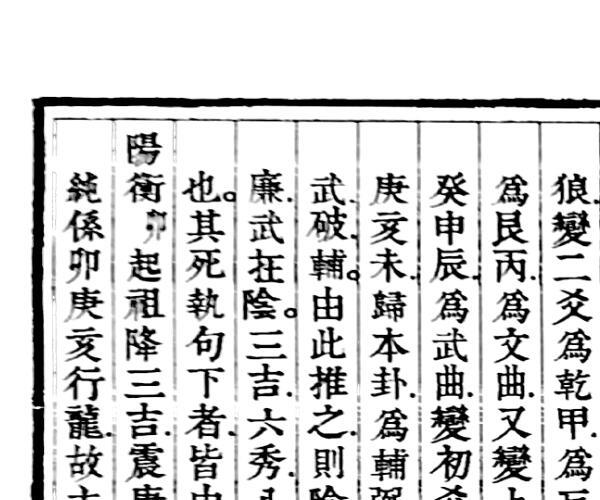 狼變二爻爲乾甲爲
爲艮丙爲文曲又變
癸申辰爲武曲變初
庚亥未歸本卦爲輔
武破輔由此推之則
廉武抂陰三吉六秀
也其死執句下者皆
陽衡卯起祖降三吉震
純係卯庚亥行龍故